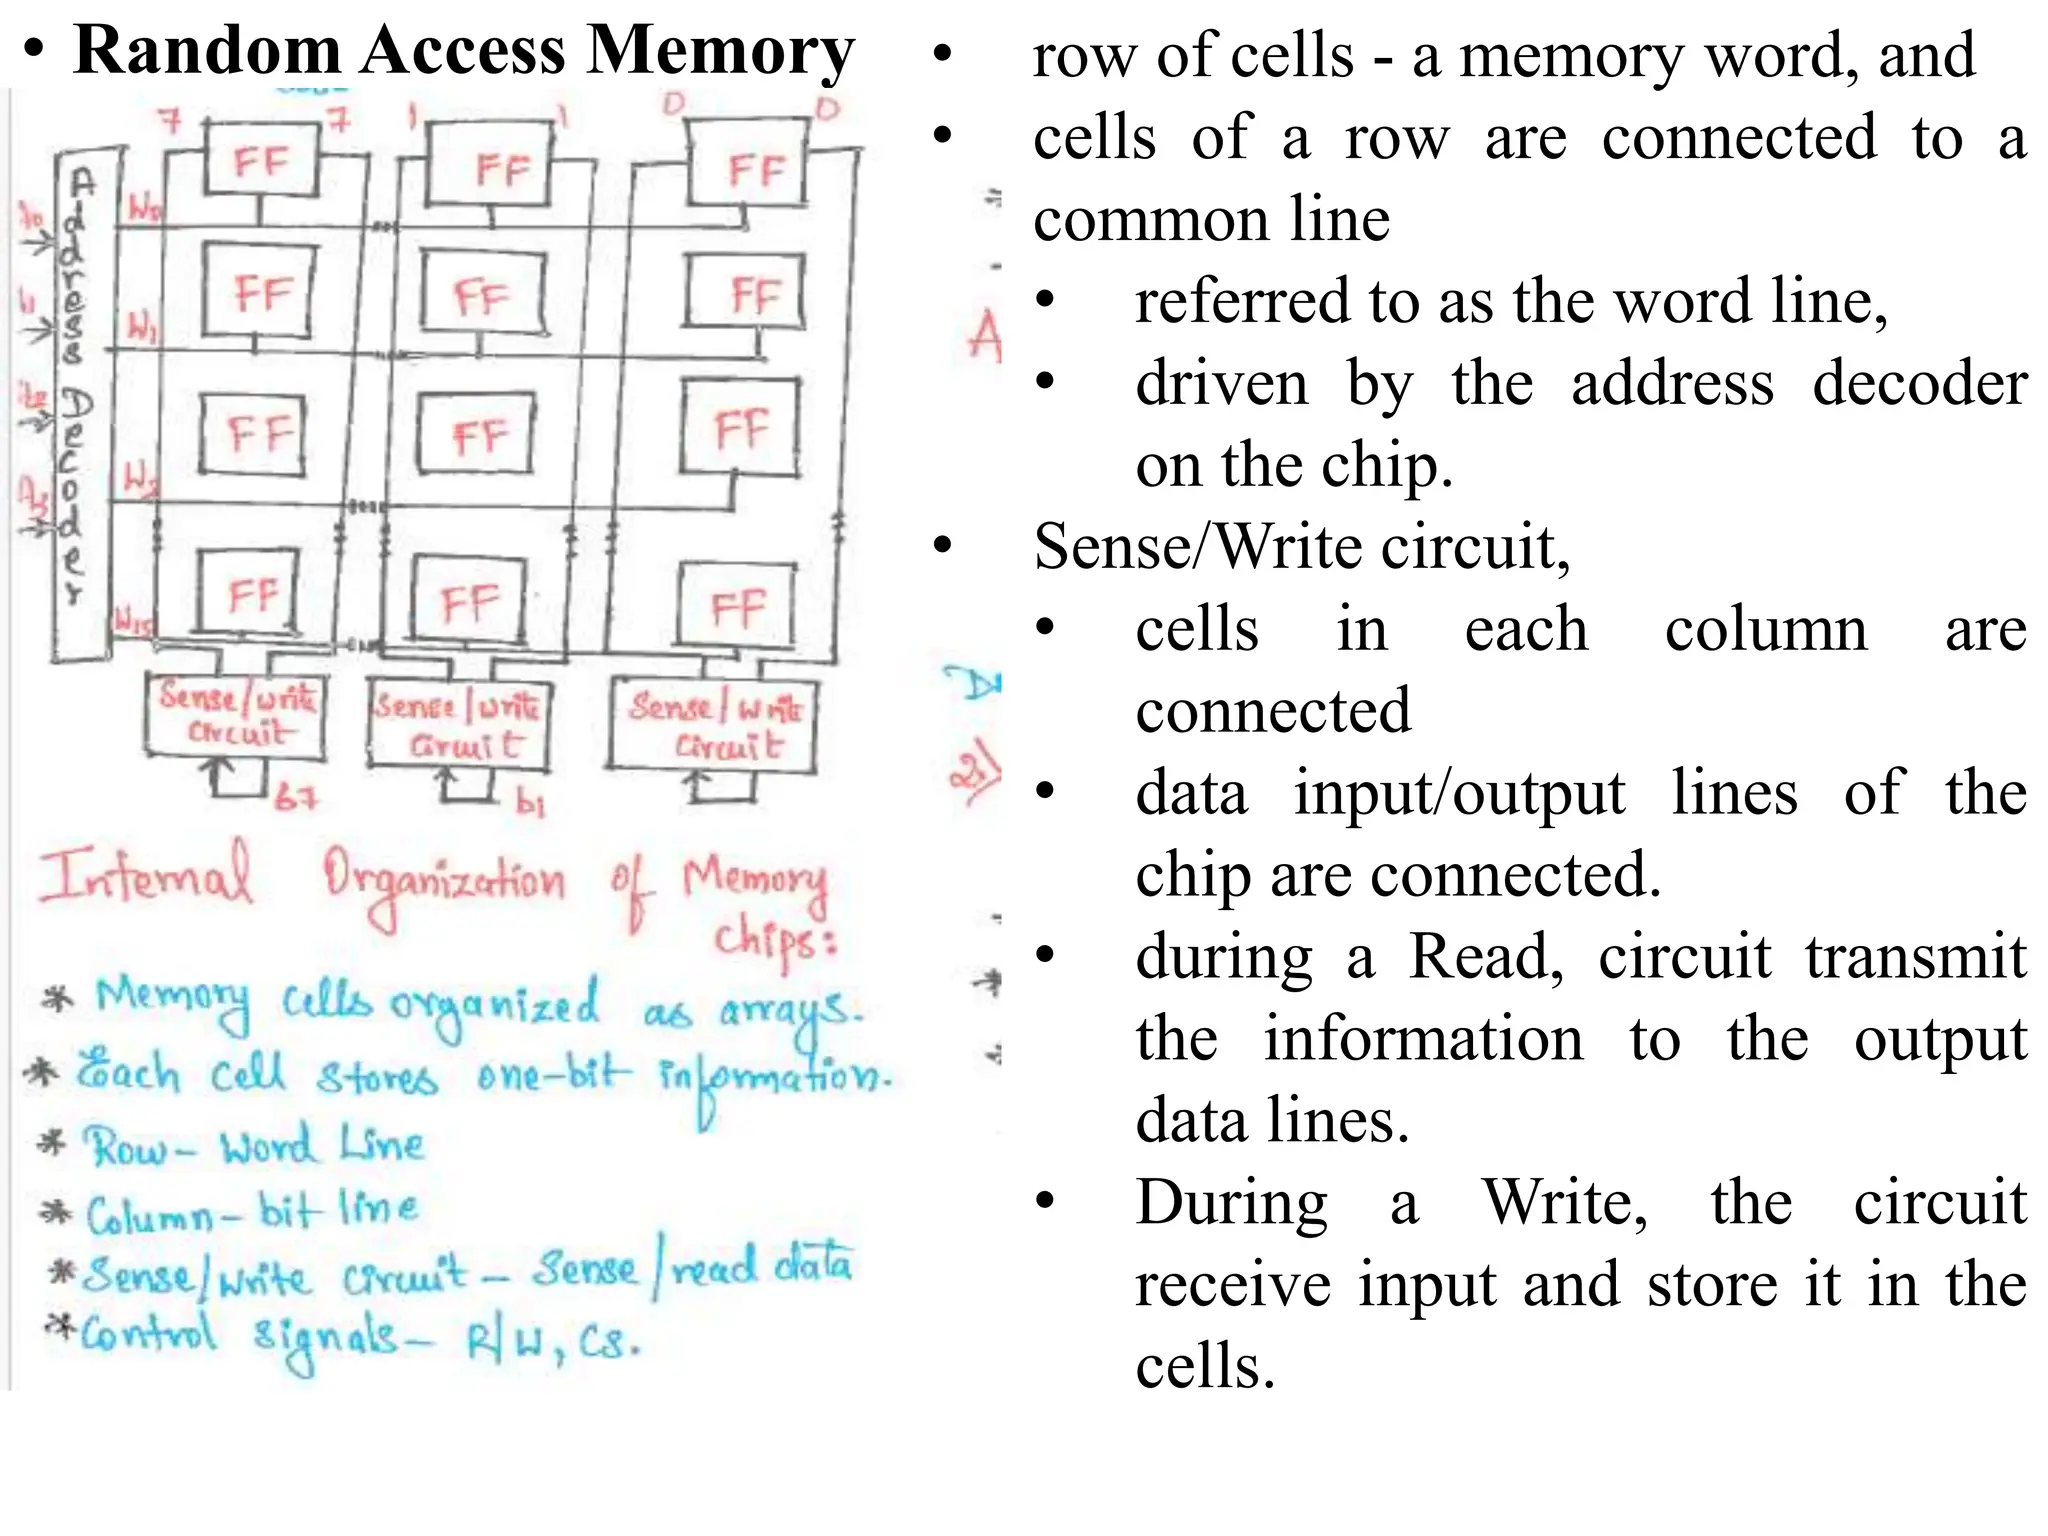 • Random Access Memory
7 7 1 1 0 0
FF FF FF
Address Decoder
W0
FF FF FF
W1
FF FF FF
W2
A3
FF FF FF
W15
Sense/write circuit
Sense/write circuit
Sense/write circuit
b7 b1
Internal Organization of Memory
chips:
* Memory cells organized as arrays.
* Each cell stores one-bit information.
* Row- Word Line
* Column- bit line
* Sense/write circuit - Sense/read data
* Control signals- R/W, CS.
• row of cells - a memory word, and
• cells of a row are connected to a
common line
• referred to as the word line,
• driven by the address decoder
on the chip.
• Sense/Write circuit,
• cells in each column are
connected
• data input/output lines of the
chip are connected.
• during a Read, circuit transmit
the information to the output
data lines.
• During a Write, the circuit
receive input and store it in the
cells.